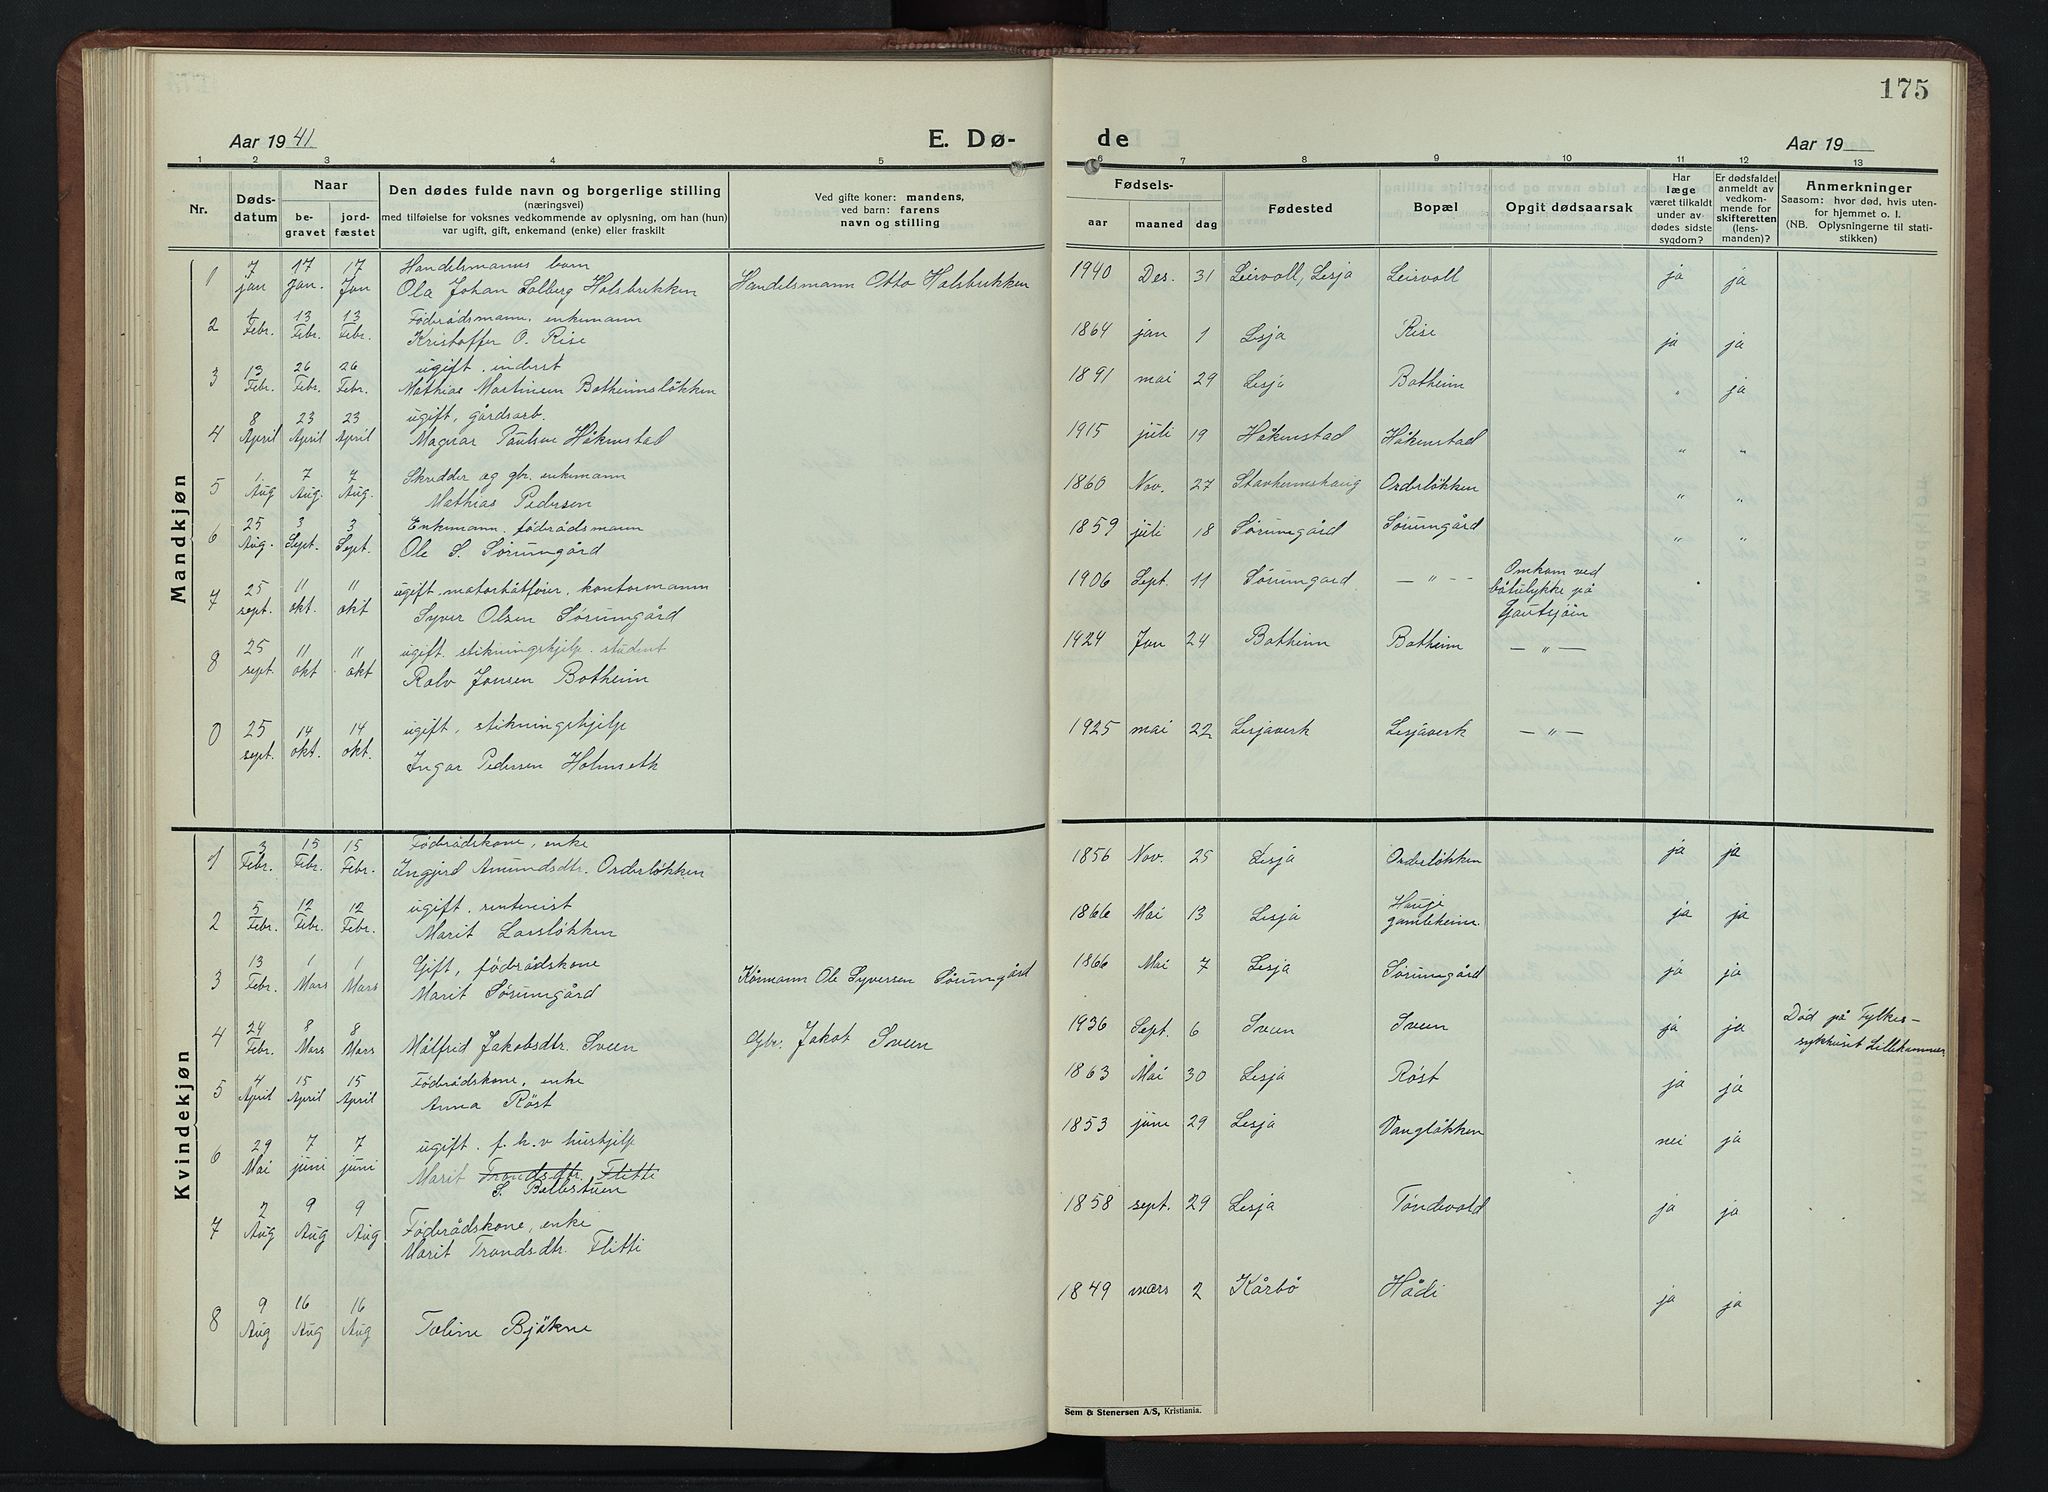 175
Aar 1941
E. Dø-
de
Aar 19
1 2 3 4 5 6 7 8 9 10 11 12 13
Nr.
Døds-
datum
Naar
be-
gravet
jord-
fæstet
Den dødes fulde navn og borgerlige stilling
(næringsvei)
med tilføielse for voksnes vedkommende av oplysning, om han (hun)
var ugift, gift, enkemand (enke) eller fraskilt
Ved gifte koner: mandens,
ved barn: farens
navn og stilling
Fødsels-
aar maaned dag
Fødested
Bopæl
Opgit dødsaarsak
Har
læge
været tilkaldt
under av-
dødes sidste
sygdom?
Er dødsfaldet
anmeldt av
vedkom-
mende for
skifteretten
(lens-
manden)?
Anmerkninger
Saasom: hvor død, hvis uten-
for hjemmet o. l.
(NB. Oplysningerne til stati-
stikken)
Mandkjøn
Handelsmanns barn
1 7 jan 17 jan. 17 Jan Ola Johan Solberg Holsbrekken Handelsmann Otto Holsbrekken 1940 Des. 31 Leirvoll, Lesja Leirvoll ja ja
Föderådsmann, enkemann
2 1 Febr. 13 Febr. 13 Febr. Kristoffer O. Rise 1864 jan 1 Lesja Rise ja ja
ugift, inderst
3 13 Febr. 26 Febr. 26 Febr. Mathias Martinsen Botheimslökken 1891 mai 29 Lesja Botheim " ja
ugift, gårdsarb.
4 8 April 23 April 23 April Magnar Paulsen Håkenstad 1915 juli 19 Håkenstad Håkenstad " "
Skredder og gbr. enkemann
5 1 Aug 7 Aug. 7 Aug. Mathias Pedersen 1860 Nov. 27 Stavheimshaug Orderlökken " "
Enkemann, föderådsmann
6 25 Aug. 3 Sept. 3 Sept. Ole S. Sörumgård 1859 juli 18 Sörumgård Sörumgård " "
ugift. motorbåtförer, kontormann
7 25 sept. 11 okt. 11 okt Syver Olsen Sörumgård 1906 Sept. 11 Sörumgard — " — Omkom ved
båtulykke på
Gautsjöen
ugift. stikningshjelp. student
8 25 sept. 11 okt. 11 okt Rolv Jonsen Botheim 1924 Jan 24 Botheim Botheim — " —
ugift, stikningshjelp
0 25 sept. 14 okt. 14 okt. Ingar Pedersen Holmseth 1925 mai 22 Lesjaverk Lesjaverk — " —
Kvindekjøn
Föderådskone, enke
1 3 Febr. 15 Febr. 15 Febr. Ingjerd Amundsdtr. Orderlökken 1856 Nov. 25 Lesja Orderlökken ja ja
ugift, rentenist
2 5 Febr. 12 Febr. 12 Febr. Marit Larslökken 1866 Mai 13 Lesja Hauge
gamleheim. ja ja
Gift, föderådskone
3 13 Febr. 1 Mars 1 Mars Marit Sörumgård Kårmann Ole Syversen Sörumgård 1866 Mai 7 Lesja Sörumgård ja ja
4 24 Febr. 8 Mars 8 Mars Målfrid Jakobsdtr. Sveen Gbr. Jakob Sveen 1936 Sept. 6 Sveen Sveen ja ja Död på Fylkes-
sykhuset Lillehammer
Föderådskone, enke
5 4 April 15 April 15 April Anna Röst 1863 Mai 30 Lesja Röst ja ja
ugift. f. h. v hushjelp
6 29 Mai 7 juni 7 juni Marit Trondsdtr. Flitti 1853 juni 29 Lesja Vanglökken nei ja
S. Ballestuen
7 2 Aug 9 Aug 9 Aug Föderådskone, enke 1858 sept. 29 Lesja Töndevold ja ja
Marit Trondsdtr. Flitti
8 9 Aug 16 Aug 16 Aug Toline Bjökne 1849 mars 2 Kårbö Hådi ja ja
Sem & Stenersen A/S, Kristiania.